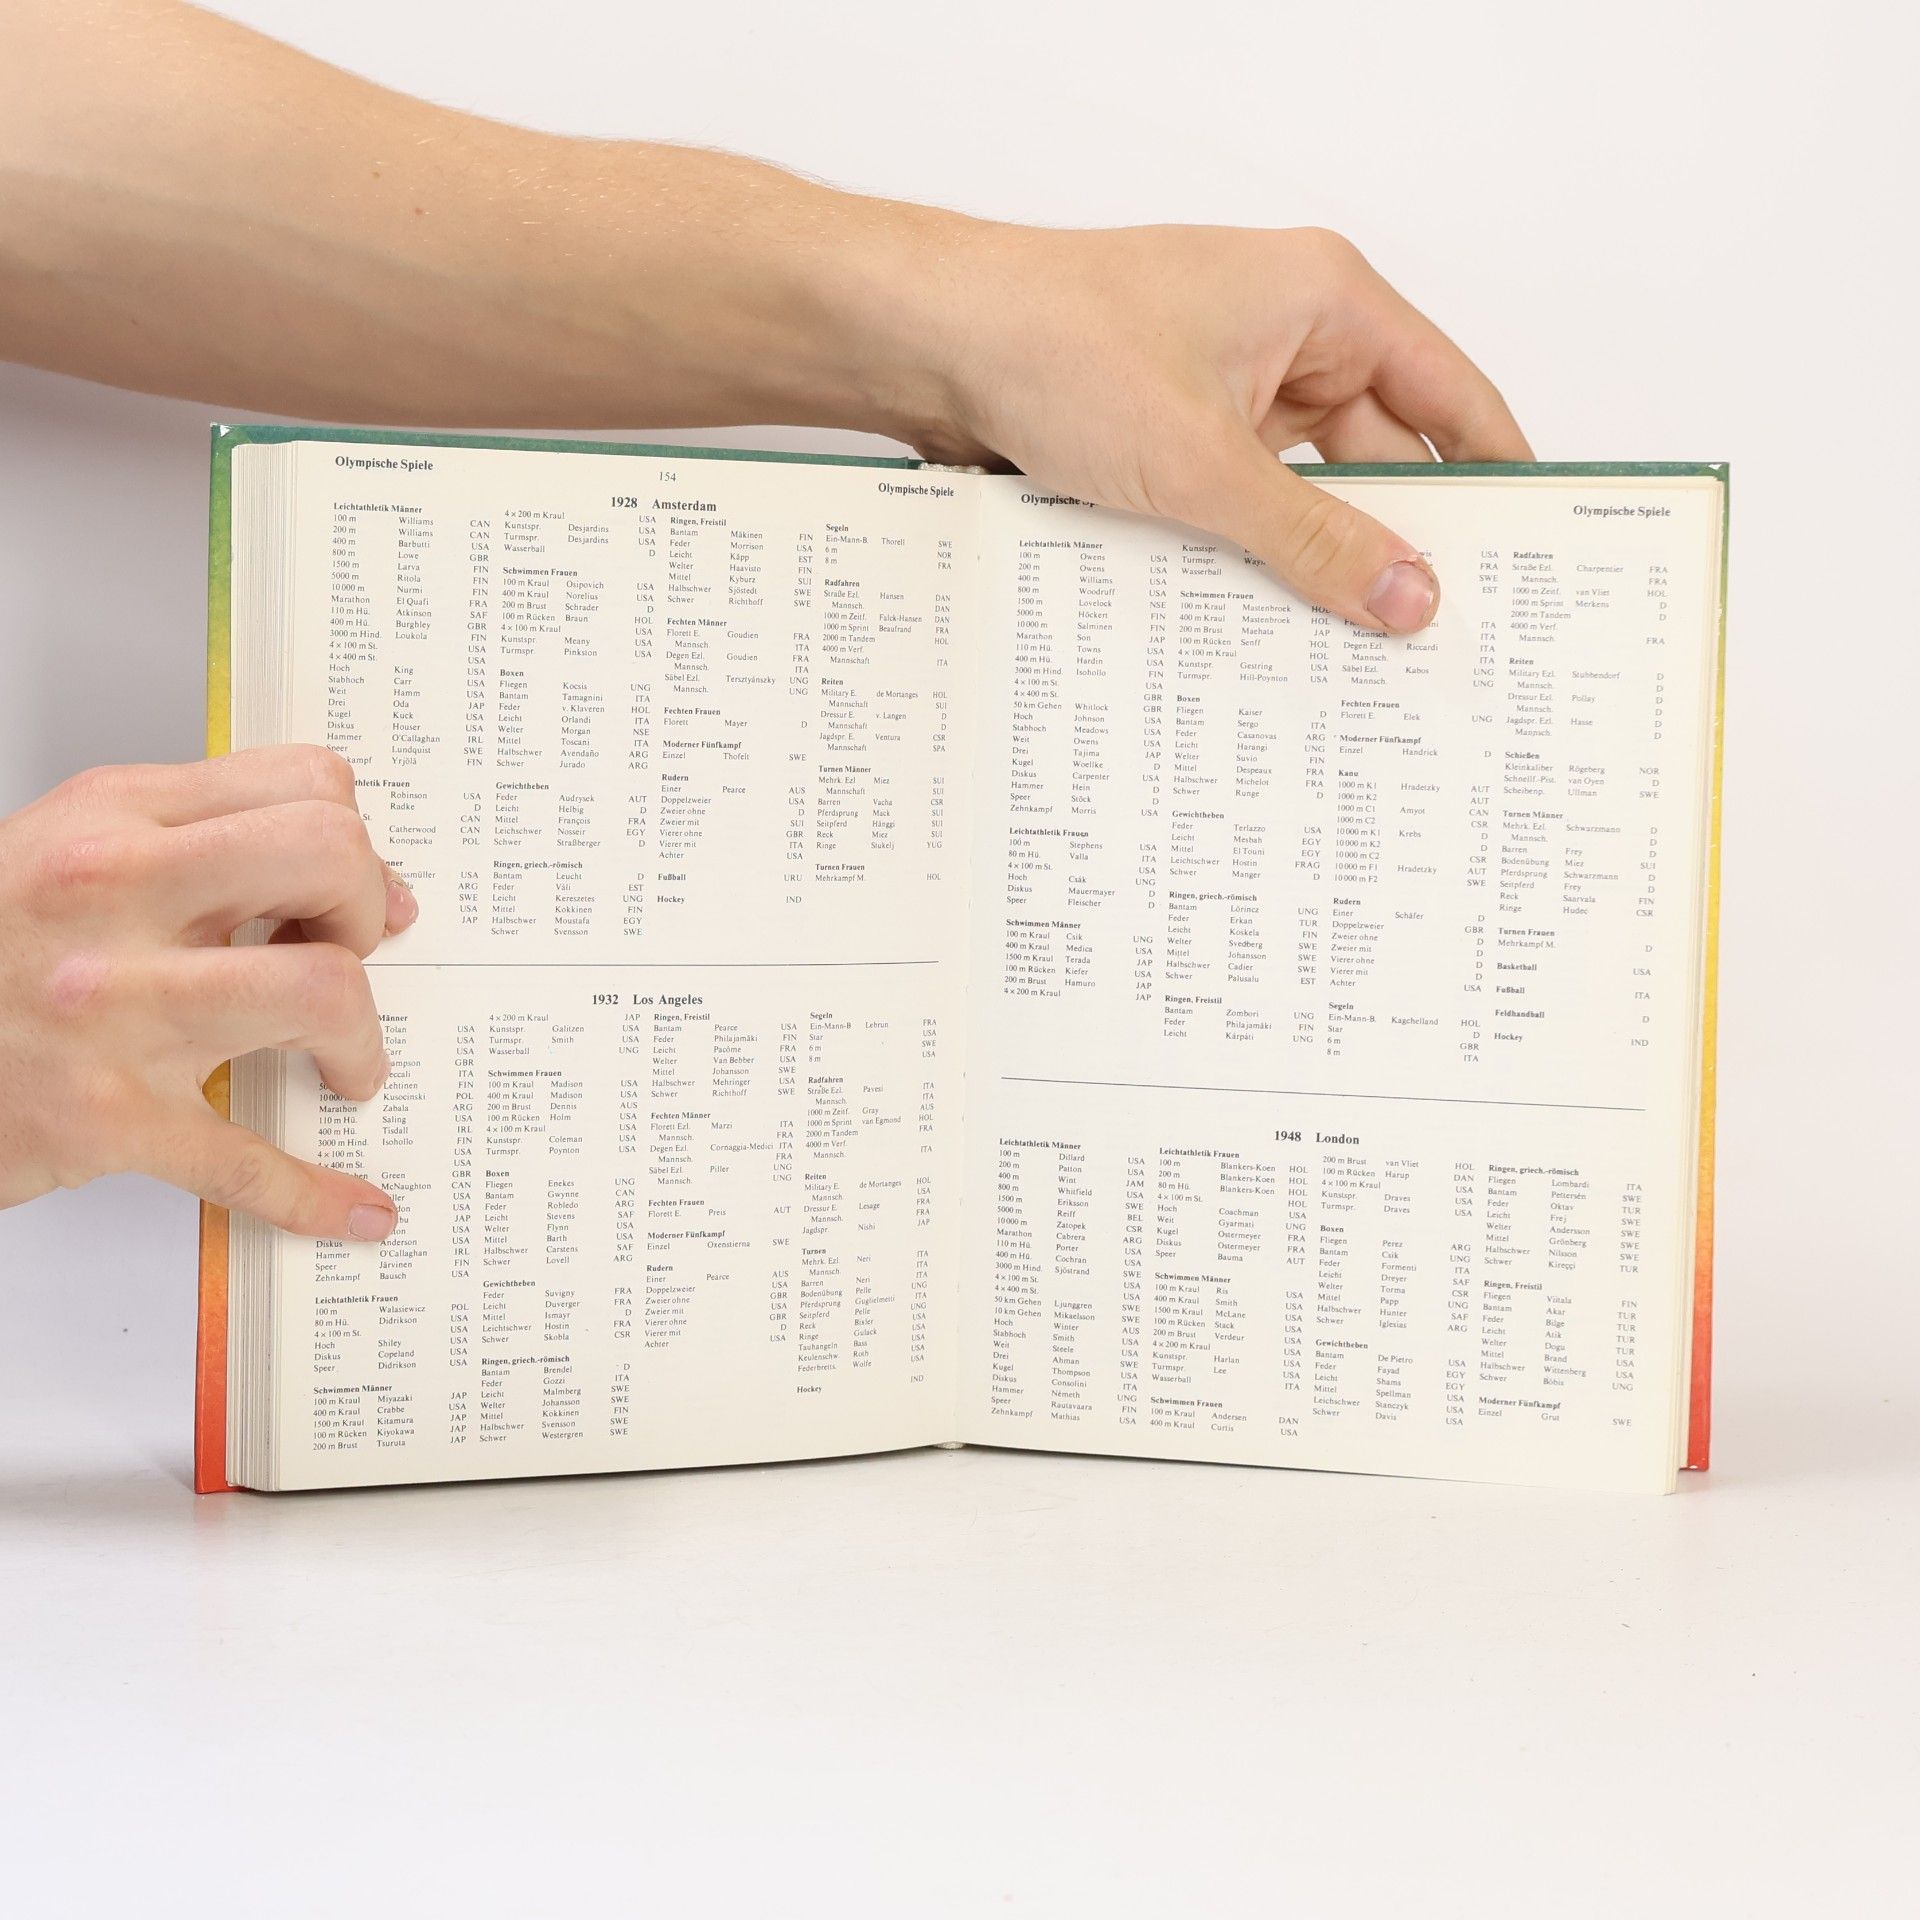 Olympische Spiele
154
Olympische Spiele
1928 Amsterdam
Leichtathletik Männer
100 m Williams CAN
200 m Williams CAN
400 m Barbutti USA
800 m Lowe GBR
1500 m Larva FIN
5000 m Ritola FIN
10 000 m Nurmi FIN
Marathon El Quafi FRA
110 m Hü. Atkinson SAF
400 m Hü. Burghley GBR
3000 m Hind. Loukola FIN
4 × 100 m St. USA
4 × 400 m St. USA
Hoch King USA
Stabhoch Carr USA
Weit Hamm USA
Drei Oda JAP
Kugel Kuck USA
Diskus Houser USA
Hammer O'Callaghan IRL
Speer Lundquist SWE
Yrjölä FIN
Robinson USA
Radke D
CAN
Catherwood CAN
Konopacka POL
USA
ARG
SWE
USA
JAP
4 × 200 m Kraul USA
Kunstspr. Desjardins USA
Turmspr. Desjardins USA
Wasserball D
Schwimmen Frauen
100 m Kraul Osipovich USA
400 m Kraul Norelius USA
200 m Brust Schrader D
100 m Rücken Braun HOL
4 × 100 m Kraul USA
Kunstspr. Meany USA
Turmspr. Pinkston USA
Boxen
Fliegen Kocsis UNG
Bantam Tamagnini ITA
Feder v. Klaveren HOL
Leicht Orlandi ITA
Welter Morgan NSE
Mittel Toscani ITA
Halbschwer Avendaño ARG
Schwer Jurado ARG
Gewichtheben
Feder Audrysek AUT
Leicht Helbig D
Mittel François FRA
Leichschwer Nosseir EGY
Schwer Straßberger D
Ringen, griech.-römisch
Bantam Leucht D
Feder Väli EST
Leicht Kereszetes UNG
Mittel Kokkinen FIN
Halbschwer Moustafa EGY
Schwer Svensson SWE
Ringen, Freistil
Bantam Mäkinen FIN
Feder Morrison USA
Leicht Käpp EST
Welter Haavisto FIN
Mittel Kyburz SUI
Halbschwer Sjöstedt SWE
Schwer Richthoff SWE
Fechten Männer
Florett E. Goudien FRA
Mannsch. ITA
Degen Ezl. Goudien FRA
Mannsch. ITA
Säbel Ezl. Tersztyánsky UNG
Mannsch. UNG
Fechten Frauen
Florett Mayer D
Moderner Fünfkampf
Einzel Thofelt SWE
Rudern
Einer Pearce AUS
Doppelzweier USA
Zweier ohne D
Zweier mit SUI
Vierer ohne GBR
Vierer mit ITA
Achter USA
Fußball URU
Hockey IND
Segeln
Ein-Mann-B. Thorell SWE
6 m NOR
8 m FRA
Radfahren
Straße Ezl. Hansen DAN
Mannsch. DAN
1000 m Zeitf. Falck-Hansen DAN
1000 m Sprint Beaufrand FRA
2000 m Tandem HOL
4000 m Verf.
Mannschaft ITA
Reiten
Military E. de Mortanges HOL
Mannschaft SUI
Dressur E. v. Langen D
Mannschaft D
Jagdspr. E. Ventura CSR
Mannschaft SPA
Turnen Männer
Mehrk. Ezl Miez SUI
Mannschaft SUI
Barren Vacha CSR
Pferdsprung Mack SUI
Seitpferd Hänggi SUI
Reck Miez SUI
Ringe Stukelj YUG
Turnen Frauen
Mehrkampf M. HOL
1932 Los Angeles
Männer
Tolan USA
Tolan USA
Carr USA
GBR
ITA
Lehtinen FIN
10 000 Kusocinski POL
Marathon Zabala ARG
110 m Hü. Saling USA
400 m Hü. Tisdall IRL
3000 m Hind. Isohollo FIN
4 × 100 m St. USA
4 × 400 m St. USA
Green GBR
McNaughton CAN
USA
USA
JAP
USA
Diskus Anderson USA
Hammer O'Callaghan IRL
Speer Järvinen FIN
Zehnkampf Bausch USA
Leichtathletik Frauen
100 m Walasiewicz POL
80 m Hü. Didrikson USA
4 × 100 m St. USA
Hoch Shiley USA
Diskus Copeland USA
Speer Didrikson USA
Schwimmen Männer
100 m Kraul Miyazaki JAP
400 m Kraul Crabbe USA
1500 m Kraul Kitamura JAP
100 m Rücken Kiyokawa JAP
200 m Brust Tsuruta JAP
4 × 200 m Kraul JAP
Kunstspr. Galitzen USA
Turmspr. Smith USA
Wasserball UNG
Schwimmen Frauen
100 m Kraul Madison USA
400 m Kraul Madison USA
200 m Brust Dennis AUS
100 m Rücken Holm USA
4 × 100 m Kraul USA
Kunstspr. Coleman USA
Turmspr. Poynton USA
Boxen
Fliegen Enekes UNG
Bantam Gwynne CAN
Feder Robledo ARG
Leicht Stevens SAF
Welter Flynn USA
Mittel Barth USA
Halbschwer Carstens SAF
Schwer Lovell ARG
Gewichtheben
Feder Suvigny FRA
Leicht Duverger FRA
Mittel Ismayr D
Leichtschwer Hostin FRA
Schwer Skobla CSR
Ringen, griech.-römisch
Bantam Brendel D
Feder Gozzi ITA
Leicht Malmberg SWE
Welter Johansson SWE
Mittel Kokkinen FIN
Halbschwer Svensson SWE
Schwer Westergren SWE
Ringen, Freistil
Bantam Pearce USA
Feder Philajamäki FIN
Leicht Pacôme FRA
Welter Van Bebber USA
Mittel Johansson SWE
Halbschwer Mehringer USA
Schwer Richthoff SWE
Fechten Männer
Florett Ezl. Marzi ITA
Mannsch. FRA
Degen Ezl. Cornaggia-Medici ITA
Mannsch. FRA
Säbel Ezl. Piller UNG
Mannsch. UNG
Fechten Frauen
Florett E. Preis AUT
Moderner Fünfkampf
Einzel Oxenstierna SWE
Rudern
Einer Pearce AUS
Doppelzweier USA
Zweier ohne GBR
Zweier mit USA
Vierer ohne GBR
Vierer mit D
Achter USA
Segeln
Ein-Mann-B Lebrun FRA
Star USA
6 m SWE
8 m USA
Radfahren
Straße Ezl. Pavesi ITA
Mannsch. ITA
1000 m Zeitf. Gray AUS
1000 m Sprint van Egmond HOL
2000 m Tandem FRA
4000 m Verf.
Mannsch. ITA
Reiten
Military E. de Mortanges HOL
Mannsch. USA
Dressur E. Lesage FRA
Mannsch. FRA
Jagdspr. Nishi JAP
Turnen
Mehrk. Ezl. Neri ITA
Mannsch. ITA
Barren Neri ITA
Bodenübung Pelle UNG
Pferdsprung Guglielmetti ITA
Seitpferd Pelle UNG
Reck Bixler USA
Ringe Gulack USA
Tauhangeln Bass USA
Keulenschw. Roth USA
Federbretts. Wolfe USA
Hockey IND
Olympische
Olympische Spiele
Leichtathletik Männer
100 m Owens USA
200 m Owens USA
400 m Williams USA
800 m Woodruff USA
1500 m Lovelock NSE
5000 m Höckert FIN
10 000 m Salminen FIN
Marathon Son JAP
110 m Hü. Towns USA
400 m Hü. Hardin USA
3000 m Hind. Isohollo FIN
4 × 100 m St. USA
4 × 400 m St. GBR
50 km Gehen Whitlock GBR
Hoch Johnson USA
Stabhoch Meadows USA
Weit Owens USA
Drei Tajima JAP
Kugel Woellke D
Diskus Carpenter USA
Hammer Hein D
Speer Stöck D
Zehnkampf Morris USA
Leichtathletik Frauen
100 m Stephens USA
80 m Hü. Valla ITA
4 × 100 m St. USA
Hoch Csák UNG
Diskus Mauermayer D
Speer Fleischer D
Schwimmen Männer
100 m Kraul Csik UNG
400 m Kraul Medica USA
1500 m Kraul Terada JAP
100 m Rücken Kiefer USA
200 m Brust Hamuro JAP
4 × 200 m Kraul JAP
Kunstspr.
Turmspr.
Wasserball
Schwimmen Frauen
100 m Kraul Mastenbroek HOL
400 m Kraul Mastenbroek HOL
200 m Brust Maehata JAP
100 m Rücken Senff HOL
4 × 100 m Kraul HOL
Kunstspr. Gestring USA
Turmspr. Hill-Poynton USA
Boxen
Fliegen Kaiser D
Bantam Sergo ITA
Feder Casanovas ARG
Leicht Harangi UNG
Welter Suvio FIN
Mittel Despeaux FRA
Halbschwer Michelot FRA
Schwer Runge D
Gewichtheben
Feder Terlazzo USA
Leicht Mesbah EGY
Mittel El Touni EGY
Leichtschwer Hostin FRAG
Schwer Manger D
Ringen, griech.-römisch
Bantam Lörincz UNG
Feder Erkan TUR
Leicht Koskela FIN
Welter Svedberg SWE
Mittel Johansson SWE
Halbschwer Cadier SWE
Schwer Palusalu EST
Ringen, Freistil
Bantam Zombori UNG
Feder Philajamäki FIN
Leicht Kárpáti UNG
USA
FRA
SWE
EST
ITA
Mannsch. ITA
Degen Ezl. Riccardi ITA
Mannsch. ITA
Säbel Ezl. Kabos UNG
Mannsch. UNG
Fechten Frauen
Florett E. Elek UNG
Moderner Fünfkampf
Einzel Handrick D
Kanu
1000 m K1 Hradetzky AUT
1000 m K2 AUT
1000 m C1 Amyot CAN
1000 m C2 CSR
10 000 m K1 Krebs D
10 000 m K2 D
10 000 m C2 CSR
10 000 m F1 Hradetzky AUT
10 000 m F2 SWE
Rudern
Einer Schäfer D
Doppelzweier GBR
Zweier ohne D
Zweier mit D
Vierer ohne D
Vierer mit D
Achter USA
Segeln
Ein-Mann-B. Kagchelland HOL
Star D
6 m GBR
8 m ITA
Radfahren
Straße Ezl. Charpentier FRA
Mannsch. FRA
1000 m Zeitf. van Vliet HOL
1000 m Sprint Merkens D
2000 m Tandem D
4000 m Verf.
Mannsch. FRA
Reiten
Military Ezl. Stubbendorf D
Mannsch. D
Dressur Ezl. Pollay D
Mannsch. D
Jagdspr. Ezl. Hasse D
Mannsch. D
Schießen
Kleinkaliber Rögeberg NOR
Schnellf.-Pist. van Oyen D
Scheibenp. Ullman SWE
Turnen Männer
Mehrk. Ezl. Schwarzmann D
Mannsch. D
Barren Frey D
Bodenübung Miez SUI
Pferdsprung Schwarzmann D
Seitpferd Frey D
Reck Saarvala FIN
Ringe Hudec CSR
Turnen Frauen
Mehrkampf M. D
Basketball USA
Fußball ITA
Feldhandball D
Hockey IND
1948 London
Leichtathletik Männer
100 m Dillard USA
200 m Patton USA
400 m Wint JAM
800 m Whitfield USA
1500 m Eriksson SWE
5000 m Reiff BEL
10 000 m Zatopek CSR
Marathon Cabrera ARG
110 m Hü. Porter USA
400 m Hü. Cochran USA
3000 m Hind. Sjöstrand SWE
4 × 100 m St. USA
4 × 400 m St. USA
50 km Gehen Ljunggren SWE
10 km Gehen Mikaelsson SWE
Hoch Winter AUS
Stabhoch Smith USA
Weit Steele USA
Drei Ahman SWE
Kugel Thompson USA
Diskus Consolini ITA
Hammer Németh UNG
Speer Rautavaara FIN
Zehnkampf Mathias USA
Leichtathletik Frauen
100 m Blankers-Koen HOL
200 m Blankers-Koen HOL
80 m Hü. Blankers-Koen HOL
4 × 100 m St. HOL
Hoch Coachman USA
Weit Gyarmati UNG
Kugel Ostermeyer FRA
Diskus Ostermeyer FRA
Speer Bauma AUT
Schwimmen Männer
100 m Kraul Ris USA
400 m Kraul Smith USA
1500 m Kraul McLane USA
100 m Rücken Stack USA
200 m Brust Verdeur USA
4 × 200 m Kraul USA
Kunstspr. Harlan USA
Turmspr. Lee USA
Wasserball ITA
Schwimmen Frauen
100 m Kraul Andersen DAN
400 m Kraul Curtis USA
200 m Brust van Vliet HOL
100 m Rücken Harup DAN
4 × 100 m Kraul USA
Kunstspr. Draves USA
Turmspr. Draves USA
Boxen
Fliegen Perez ARG
Bantam Csik UNG
Feder Formenti ITA
Leicht Dreyer SAF
Welter Torma CSR
Mittel Papp UNG
Halbschwer Hunter SAF
Schwer Iglesias ARG
Gewichtheben
Bantam De Pietro USA
Feder Fayad EGY
Leicht Shams EGY
Mittel Spellman USA
Leichschwer Stanczyk USA
Schwer Davis USA
Ringen, griech.-römisch
Fliegen Lombardi ITA
Bantam Pettersén SWE
Feder Oktav TUR
Leicht Frej SWE
Welter Andersson SWE
Mittel Grönberg SWE
Halbschwer Nilsson SWE
Schwer Kireçci TUR
Ringen, Freistil
Fliegen Viitala FIN
Bantam Akar TUR
Feder Bilge TUR
Leicht Atik TUR
Welter Dogu TUR
Mittel Brand USA
Halbschwer Wittenberg USA
Schwer Bóbis UNG
Moderner Fünfkampf
Einzel Grut SWE